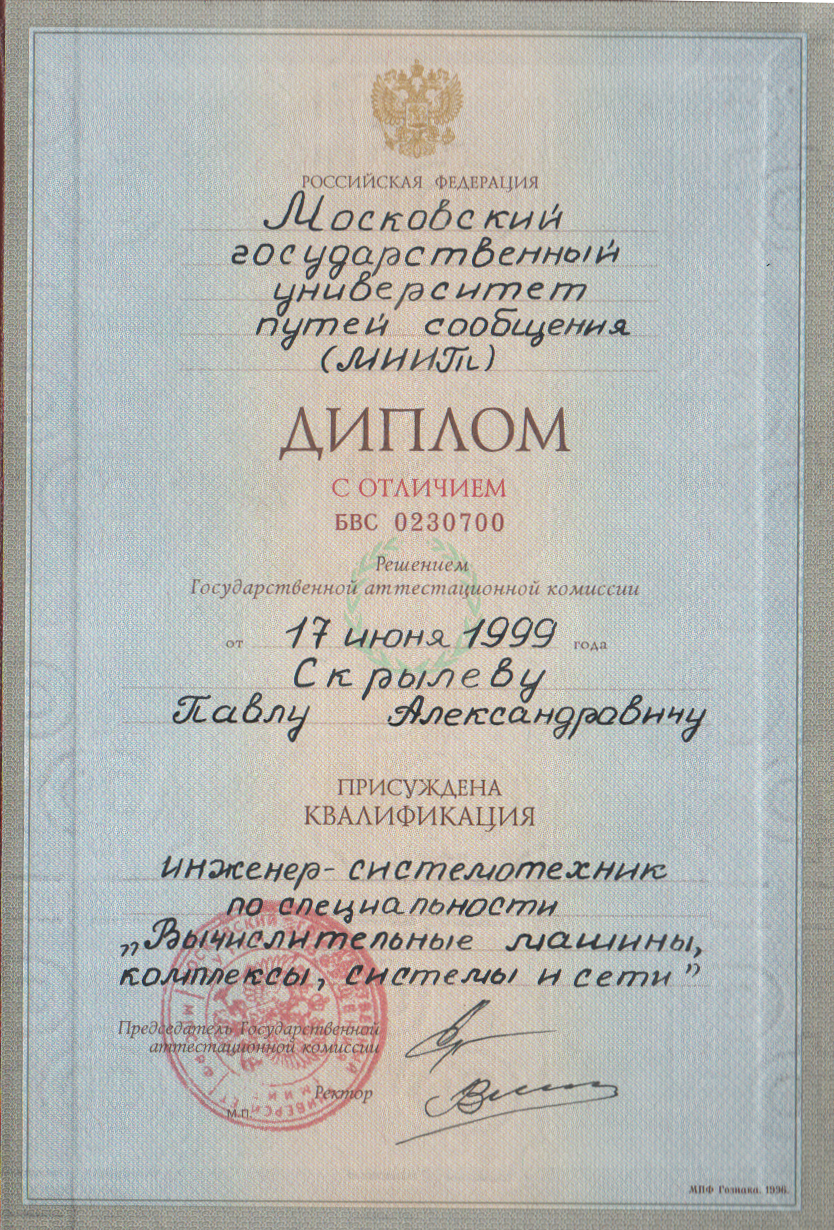 РОССИЙСКАЯ ФЕДЕРАЦИЯ
Московский
государственный
университет
путей сообщения
(МИИТ)
ДИПЛОМ
С ОТЛИЧИЕМ
БВС 0230700
Решением
Государственной аттестационной комиссии
от 17 июня 1999 года
Скрылеву
Павлу Александровичу
ПРИСУЖДЕНА
КВАЛИФИКАЦИЯ
инженер-системотехник
по специальности
„Вычислительные машины,
комплексы, системы и сети”
Председатель Государственной
аттестационной комиссии
Ректор
М.П.
МПФ Гознака. 1996.